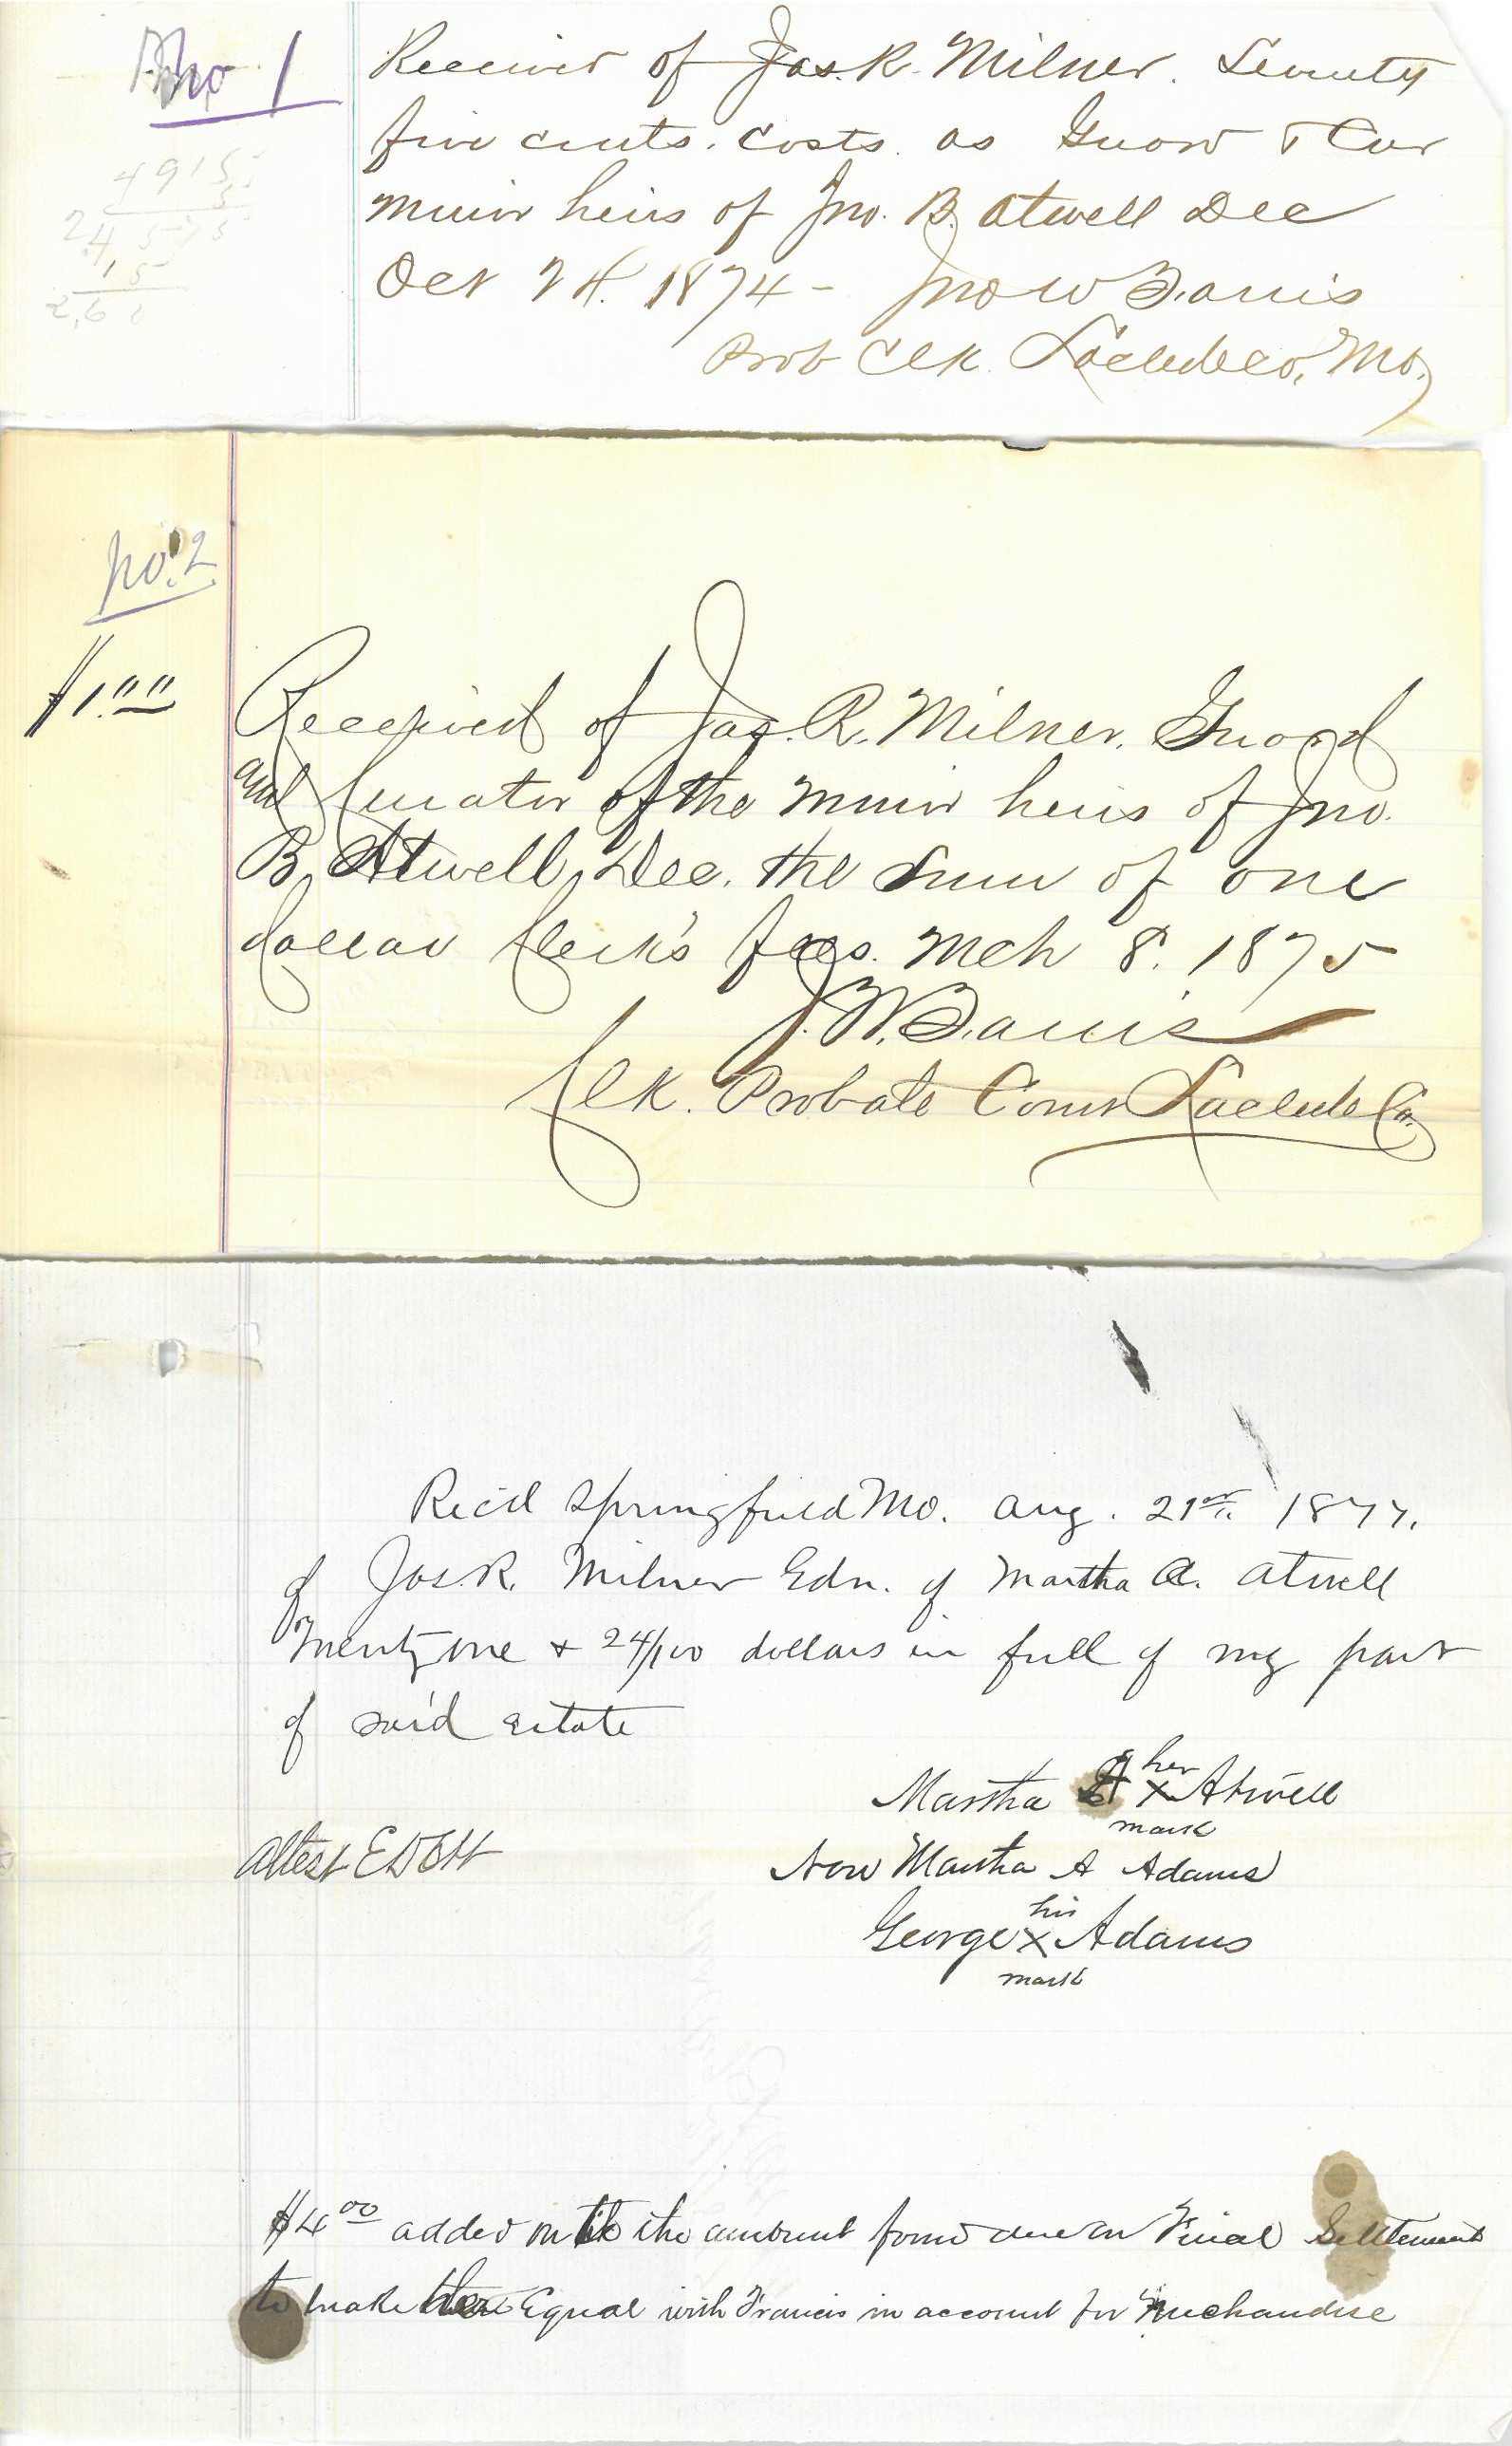 No 1
4915
5
24575
15
Received of Jas. R. Milner. Seventy
five cents. costs. as Guard & Cur
minor heirs of Jno. B. Atwell Dec
Oct 24. 1874 - Jno W Farris
Prob Clk. Laclede co, Mo.
No. 2
$1.00
Received of Jas. R. Milner. Guard
and Curator of the minor heirs of Jno.
B. Atwell, Dec. the sum of one
dollar Clerk's fees. Mch 8. 1875
J. W. Farris
Clk. Probate Court Laclede Co.
Rec'd Springfield Mo. Aug. 21st. 1877.
of Jas. R. Milner Gdn. of Martha A. Atwell
Twenty one & 24/100 dollars in full of my part
of said estate
Martha A her x mark Atwell
Attest E D Ott
Now Martha A Adams
George his x mark Adams
$4 00 added on to the amount found due on Final Settlement
to make her Equal with Francis in account for Merchandise